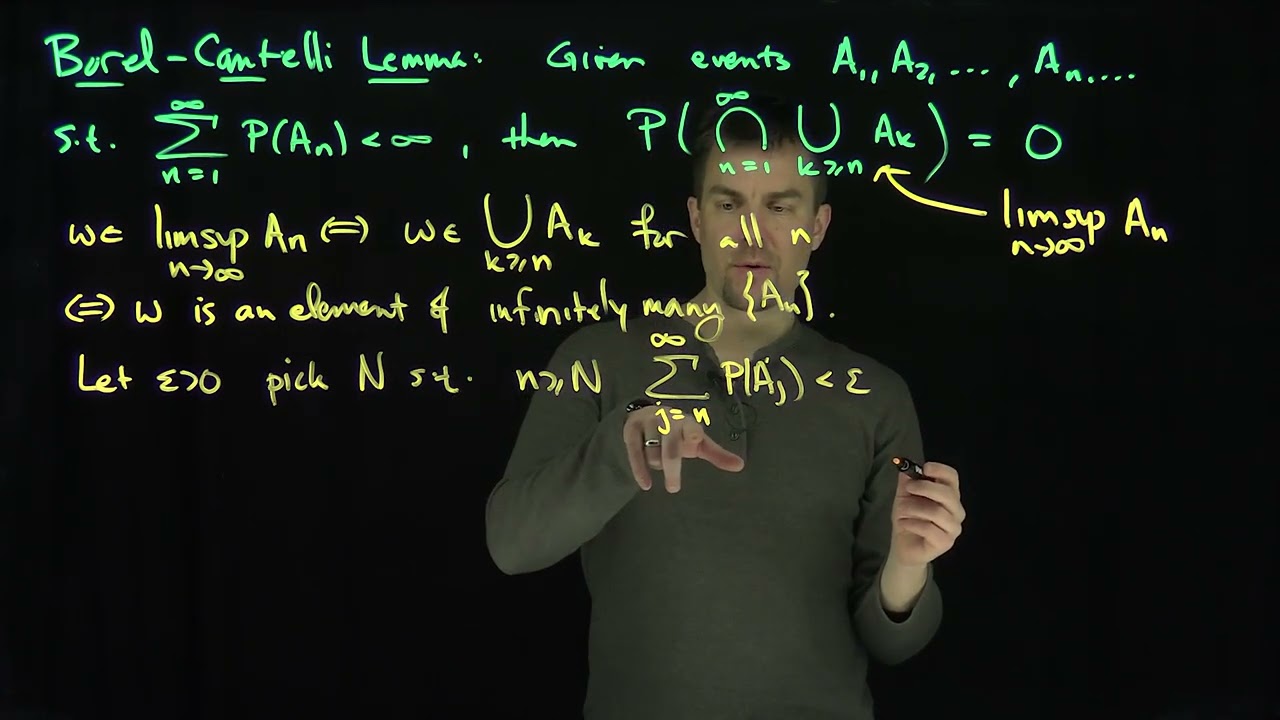 Borel-Cantelli Lemma: Given events A₁, A₂, ..., Aₙ, ....
s.t. ∑_{n=1}^{∞} P(Aₙ) < ∞, then P(⋂_{n=1}^{∞} ⋃_{k≥n} A_k) = 0
limsup_{n→∞} Aₙ
ω ∈ limsup_{n→∞} Aₙ ⟺ ω ∈ ⋃_{k≥n} A_k for all n
⟺ ω is an element of infinitely many {Aₙ}.
Let ε>0 pick N s.t. n≥N ∑_{j=n}^{∞} P(A_j) < ε